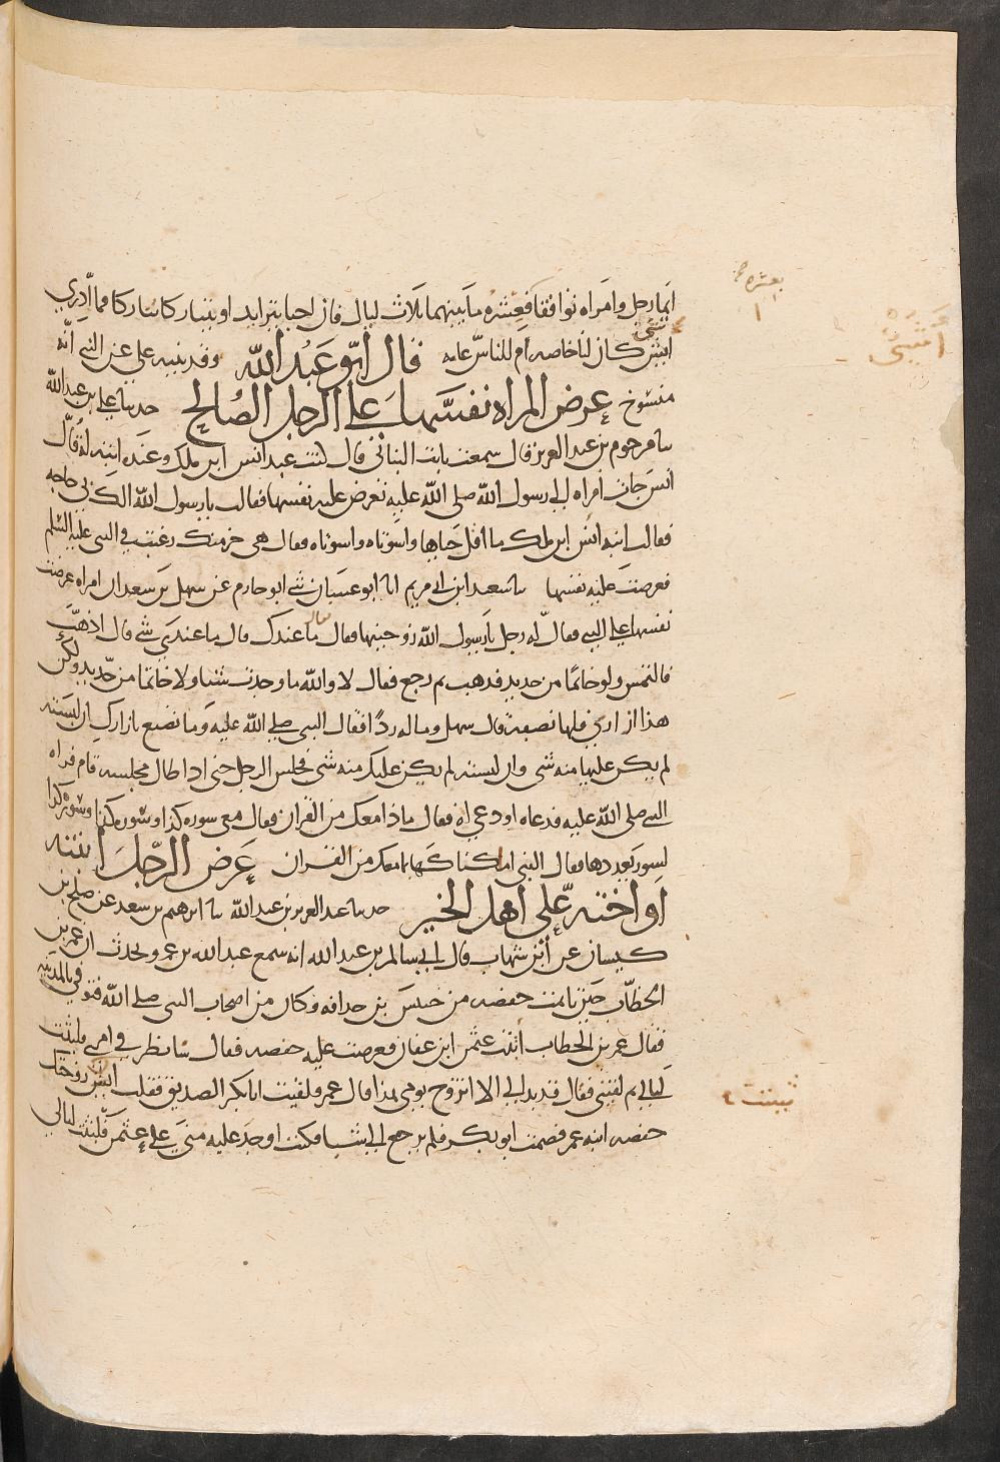 ايما رجل وامراه توافقا فعشره ما بينهما ثلاث ليال فان احبا يتزايد او يتتاركا تتاركا فما ادري
اشئ كان لنا خاصه ام للناس عامه قال ابو عبد الله وقد بينه علي عن النبي انه
منسوخ عرض المراه نفسها على الرجل الصالح حدثنا علي بن عبد الله
نا مرحوم بن عبد العزيز قال سمعت ثابت البناني قال كنت عند انس ابن ملك وعنده ابنه له قال
انس جات امراه الى رسول الله صلى الله عليه تعرض عليه نفسها فقالت يا رسول الله الك بي حاجه
فقالت ابنه انس ابن ملك ما اقل حياها واسوتاه واسوتاه فقال هي خير منك رغبت في النبي عليه السلم
فعرضت عليه نفسها نا سعيد ابن ابي مريم انا ابو غسان ني ابو حازم عن سهل بن سعد ان امراه عرضت
نفسها على النبي فقال له رجل يا رسول الله زوجنيها فقال ما عندك قال ما عندي شي قال اذهب
فالتمس ولو خاتما من حديد فذهب ثم رجع فقال لا والله ما وجدت شيا ولا خاتما من حديد ولكن
هذا ازاري فلها نصفه قال سهل وما له ردا فقال النبي صلى الله عليه وما تصنع بازارك ان لبسته
لم يكن عليها منه شي وان لبسته لم يكن عليك منه شي فجلس الرجل حتى اذا طال مجلسه قام فراه
النبي صلى الله عليه فدعاه او دعي له فقال ماذا معك من القران فقال معي سوره كذا وسوره كذا وسوره كذا
لسور يعددها فقال النبي املكناكها بما معك من القران عرض الرجل ابنته
او اخته على اهل الخير حدثنا عبد العزيز بن عبد الله نا ابرهيم بن سعد عن صلح بن
كيسان عن ابن شهاب قال اخبرني سالم بن عبد الله انه سمع عبد الله بن عمر يحدث ان عمر بن
الخطاب حين تايمت حفصه من خنيس بن حذافه وكان من اصحاب النبي صلى الله فتوفي بالمدينه
فقال عمر بن الخطاب اتيت عثمن ابن عفان فعرضت عليه حفصه فقال سانظر في امري فلبثت
ليالي ثم لقيني فقال قد بدا لي الا اتزوج يومي هذا قال عمر فلقيت ابا بكر الصديق فقلت ان شيت زوجتك
حفصه ابنه عمر فصمت ابو بكر فلم يرجع الي شيا وكنت اوجد عليه مني على عثمن فلبثت ليالي